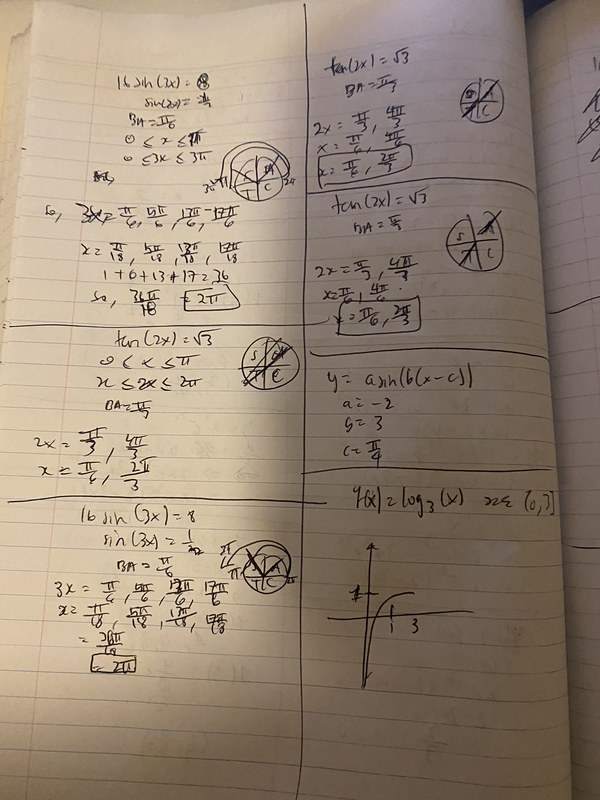 16 sin(2x) = 8
BA = π/6
0 ≤ x ≤ π
0 ≤ 3x ≤ 3π
C
3π 2π
So, 3x = π/6, 5π/6, 13π/6, 17π/6
x = π/18, 5π/18, 13π/18, 17π/18
1 + 6 + 13 + 17 = 36
so, 36π/18 = 2π
tan(2x) = √3
0 < x ≤ π
x ≤ 2x ≤ 2π
BA = π/3
S
C
2x = π/3, 4π/3
x = π/6, 2π/3
16 sin(3x) = 8
sin(3x) = 1/2
BA = π/6
2π
π
T C
3x = π/6, 5π/6, 13π/6, 17π/6
x = π/18, 5π/18, 13π/18, 17π/18
= 36π/18
= 2π
tan(2x) = √3
BA = π/3
C
2x = π/3, 4π/3
x = π/6, 4π/6
x = π/6, 2π/3
tan(2x) = √3
S
C
2x = π/3, 4π/3
x = π/6, 4π/6
x = π/6, 2π/3
y = a sin(b(x-c))
a = -2
b = 3
c = π/4
f(x) = log₃(x) x ∈ (0,3]
1
1 3